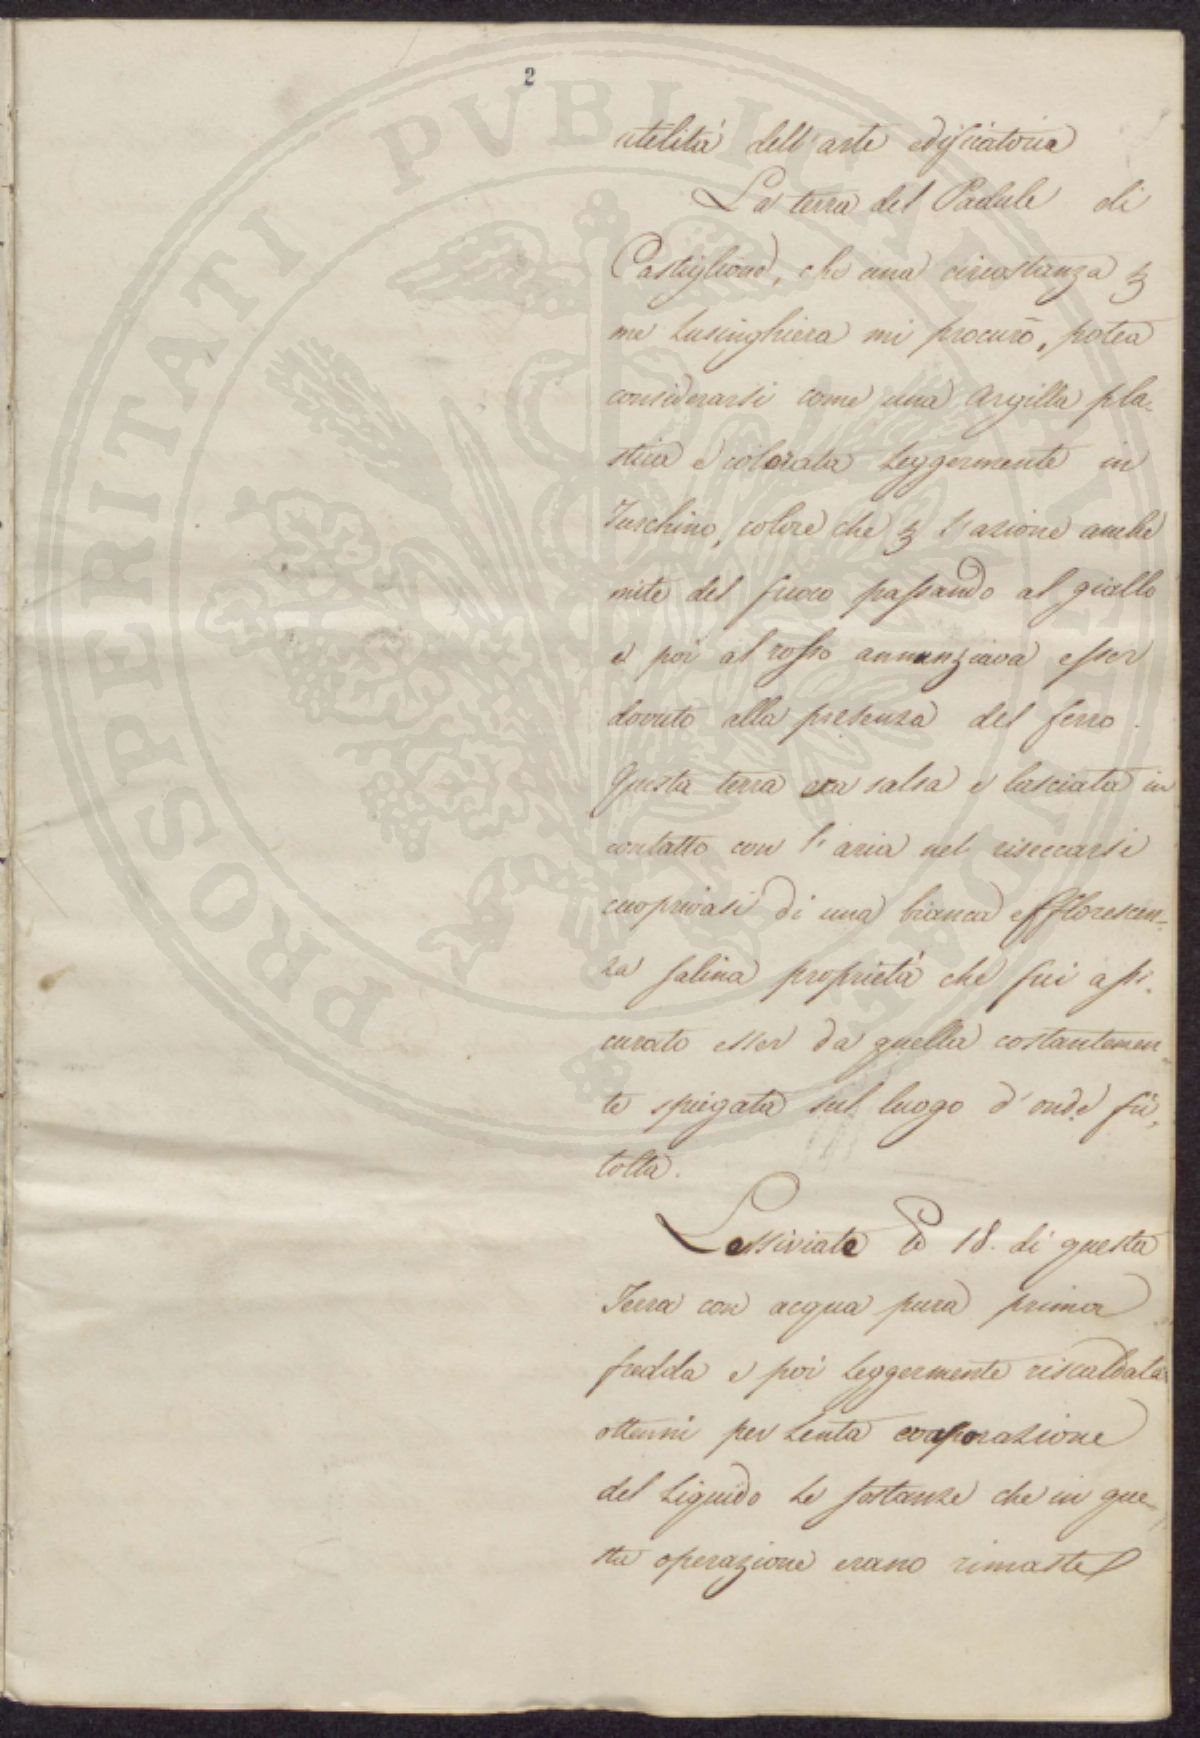 2
utilità dell'arte edificatoria
La terra del Padule di
Castiglione, che una circostanza ꝑ
me Lusinghiera mi procurò, potea
considerarsi come una Argilla pla-
stica e colorata Leggermente in
Turchino, colore che ꝑ l'azione anche
mite del fuoco passando al giallo
e poi al rosso annunziava esser
dovuto alla presenza del ferro.
Questa terra era salsa e lasciata in
contatto con l'aria nel riseccarsi
cuoprivasi di una bianca efflorescen-
za salina proprietà che fui assi-
curato esser da quella costantemen-
te spiegata sul luogo d'onde fù
tolta.
Lessiviate ℔ 18. di questa
Terra con acqua pura prima
fredda e poi Leggermente riscaldata
ottenni per Lenta evaporazione
del Liquido Le sostanze che in que-
sta operazione erano rimaste
PROSPERITATI PVBLICAE